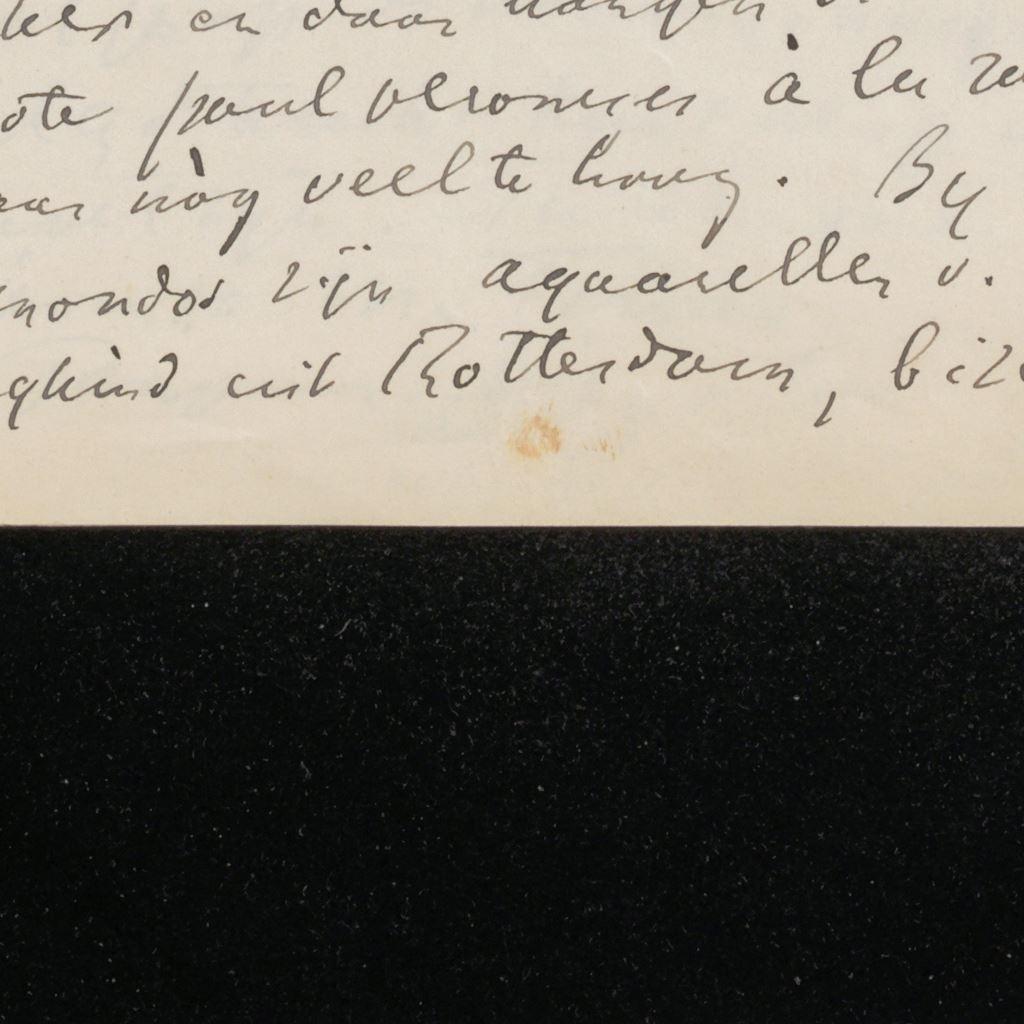 en daar hangen
ote paul veroneses à la
nòg veel te hoog. By
mondos zijn aquarellen v.
gkind uit Rotterdam,